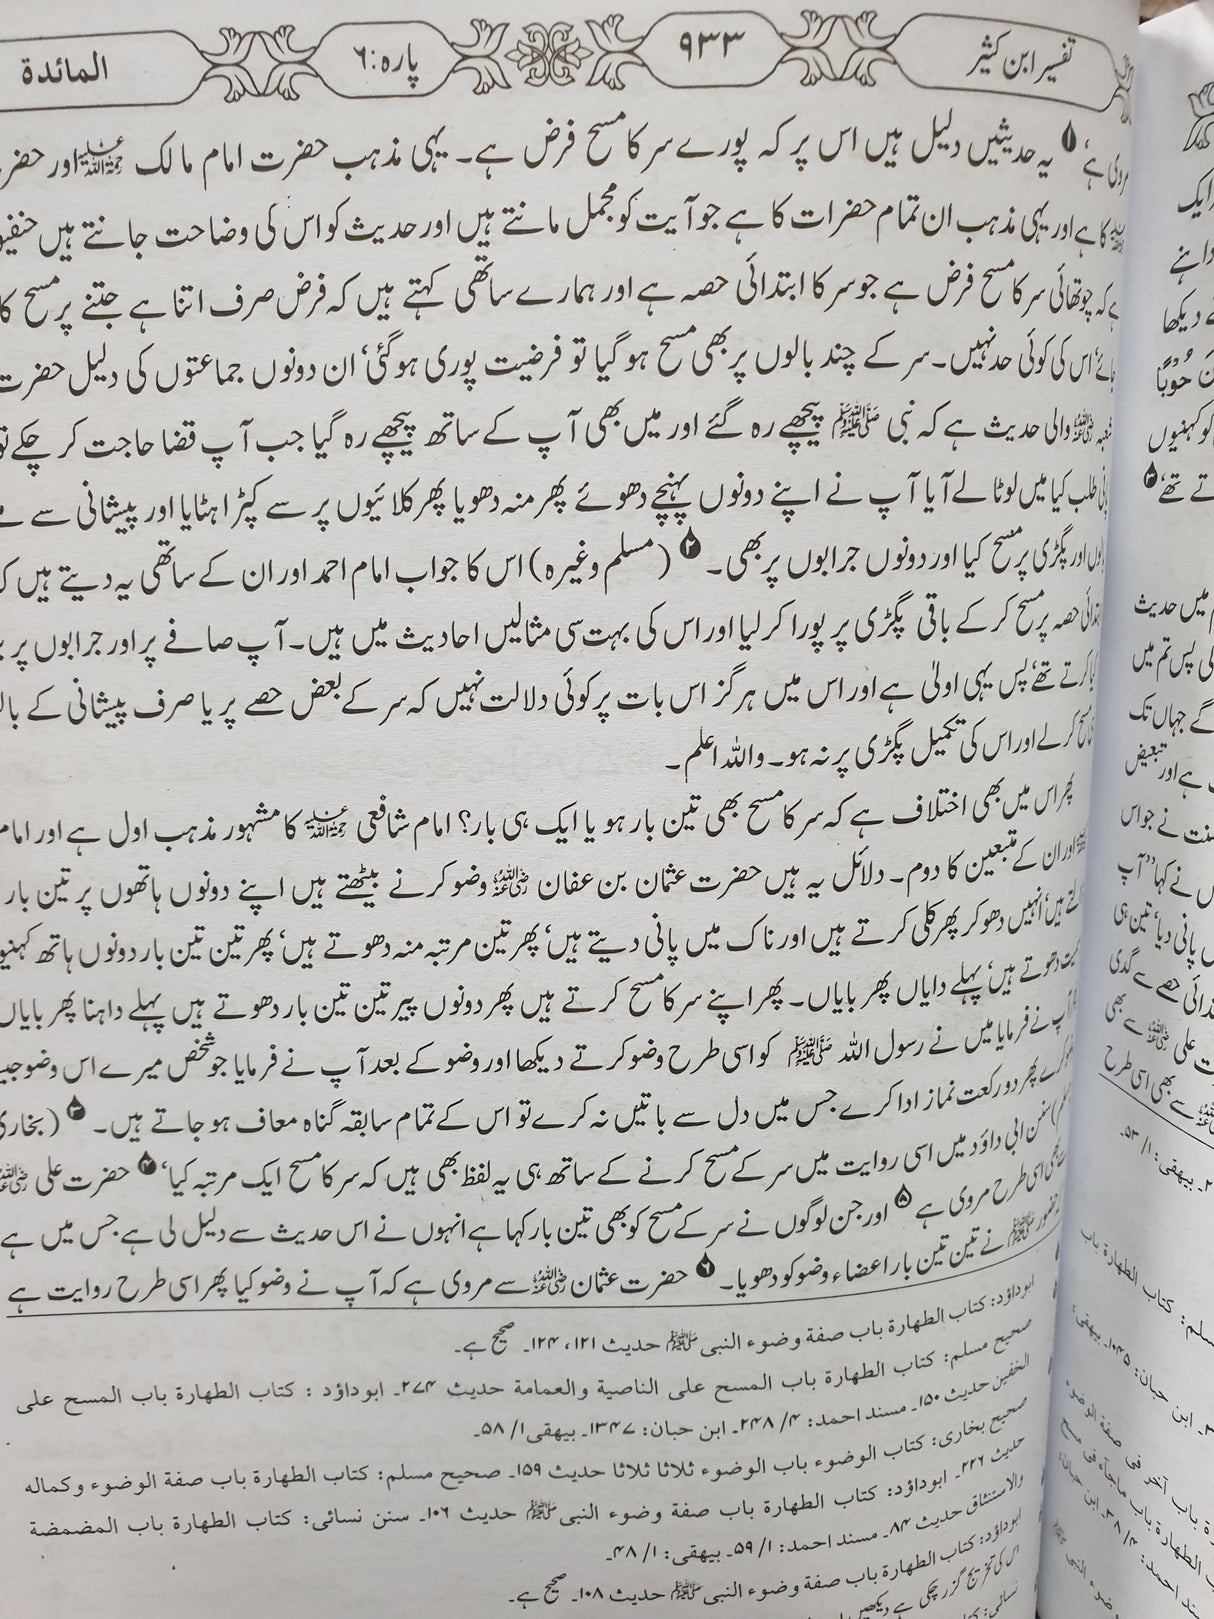 تفسیر ابن کثیر
۹۳۳
پارہ:۶
المائدة
مروی ہے‘ ۱ یہ حدیثیں دلیل ہیں اس پر کہ پورے سر کا مسح فرض ہے۔ یہی مذہب حضرت امام مالک رحمۃ اللہ علیہ اور
کا ہے اور یہی مذہب ان تمام حضرات کا ہے جو آیت کو مجمل مانتے ہیں اور حدیث کو اس کی وضاحت جانتے ہیں
ہے کہ چوتھائی سر کا مسح فرض ہے جو سر کا ابتدائی حصہ ہے اور ہمارے ساتھی کہتے ہیں کہ فرض صرف اتنا ہے جتنے پر مسح کا
جائے‘ اس کی کوئی حد نہیں۔ سر کے چند بالوں پر بھی مسح ہو گیا تو فرضیت پوری ہو گئی‘ ان دونوں جماعتوں کی دلیل حضرت
شعبہ رضی اللہ عنہ والی حدیث ہے کہ نبی ﷺ پیچھے رہ گئے اور میں بھی آپ کے ساتھ پیچھے رہ گیا جب آپ قضا حاجت کر چکے تو
پانی طلب کیا میں لوٹا لے آیا آپ نے اپنے دونوں پہنچے دھوئے پھر منہ دھویا پھر کلائیوں پر سے کپڑا ہٹایا اور پیشانی سے
بالوں اور پگڑی پر مسح کیا اور دونوں جرابوں پر بھی۔ ۲ (مسلم وغیرہ) اس کا جواب امام احمد اور ان کے ساتھی یہ دیتے ہیں
ابتدائی حصہ پر مسح کر کے باقی پگڑی پر پورا کر لیا اور اس کی بہت سی مثالیں احادیث میں ہیں۔ آپ صافے پر اور جرابوں پر
کیا کرتے تھے‘ پس یہی اولیٰ ہے اور اس میں ہرگز اس بات پر کوئی دلالت نہیں کہ سر کے بعض حصے پر یا صرف پیشانی کے
مسح کرلے اور اس کی تکمیل پگڑی پر نہ ہو۔ واللہ اعلم۔
پھر اس میں بھی اختلاف ہے کہ سر کا مسح بھی تین بار ہو یا ایک ہی بار؟ امام شافعی رحمۃ اللہ علیہ کا مشہور مذہب اول ہے اور امام
اور ان کے متبعین کا دوم۔ دلائل یہ ہیں حضرت عثمان بن عفان رضی اللہ عنہ وضو کرنے بیٹھتے ہیں اپنے دونوں ہاتھوں پر تین بار
ہیں‘ انہیں دھو کر پھر کلی کرتے ہیں اور ناک میں پانی دیتے ہیں‘ پھر تین مرتبہ منہ دھوتے ہیں‘ پھر تین تین بار دونوں ہاتھ
دھوتے ہیں‘ پہلے دایاں پھر بایاں۔ پھر اپنے سر کا مسح کرتے ہیں پھر دونوں پیر تین تین بار دھوتے ہیں پہلے داہنا پھر بایاں
آپ نے فرمایا میں نے رسول اللہ ﷺ کو اسی طرح وضو کرتے دیکھا اور وضو کے بعد آپ نے فرمایا جو شخص میرے اس وضو
کرے پھر دو رکعت نماز ادا کرے جس میں دل سے باتیں نہ کرے تو اس کے تمام سابقہ گناہ معاف ہو جاتے ہیں۔ ۳ (بخاری
مسلم) سنن ابی داؤد میں اسی روایت میں سر کے مسح کرنے کے ساتھ ہی یہ لفظ بھی ہیں کہ سر کا مسح ایک مرتبہ کیا‘ ۴ حضرت علی رضی اللہ عنہ
بھی اسی طرح مروی ہے ۵ اور جن لوگوں نے سر کے مسح کو بھی تین بار کہا ہے انہوں نے اس حدیث سے دلیل لی ہے جس میں ہے
حضور ﷺ نے تین تین بار اعضاء وضو کو دھویا۔ ۶ حضرت عثمان رضی اللہ عنہ سے مروی ہے کہ آپ نے وضو کیا پھر اسی طرح روایت ہے
ابوداؤد: کتاب الطهارة باب صفة وضوء النبی ﷺ حدیث ۱۲۱، ۱۲۴۔ صحیح ہے۔
صحیح مسلم: کتاب الطهارة باب المسح علی الناصیة والعمامة حدیث ۲۷۴۔ ابوداؤد : کتاب الطهارة باب المسح علی
الخفین حدیث ۱۵۰۔ مسند احمد: ۴/ ۲۴۸۔ ابن حبان: ۱۳۴۷۔ بیهقی ۱/ ۵۸۔
صحیح بخاری: کتاب الوضوء باب الوضوء ثلاثا ثلاثا حدیث ۱۵۹۔ صحیح مسلم: کتاب الطهارة باب صفة الوضوء وکماله
حدیث ۲۲۶۔ ابوداؤد: کتاب الطهارة باب صفة وضوء النبی ﷺ حدیث ۱۰۶۔ سنن نسائی: کتاب الطهارة باب المضمضة
والاستنثاق حدیث ۸۴۔ مسند احمد: ۱/ ۵۹۔ بیهقی: ۱/ ۴۸۔
ابوداؤد: کتاب الطهارة باب صفة وضوء النبی ﷺ حدیث ۱۰۸۔ صحیح ہے۔
اس کی تخریج گزر چکی ہے دیکھیں